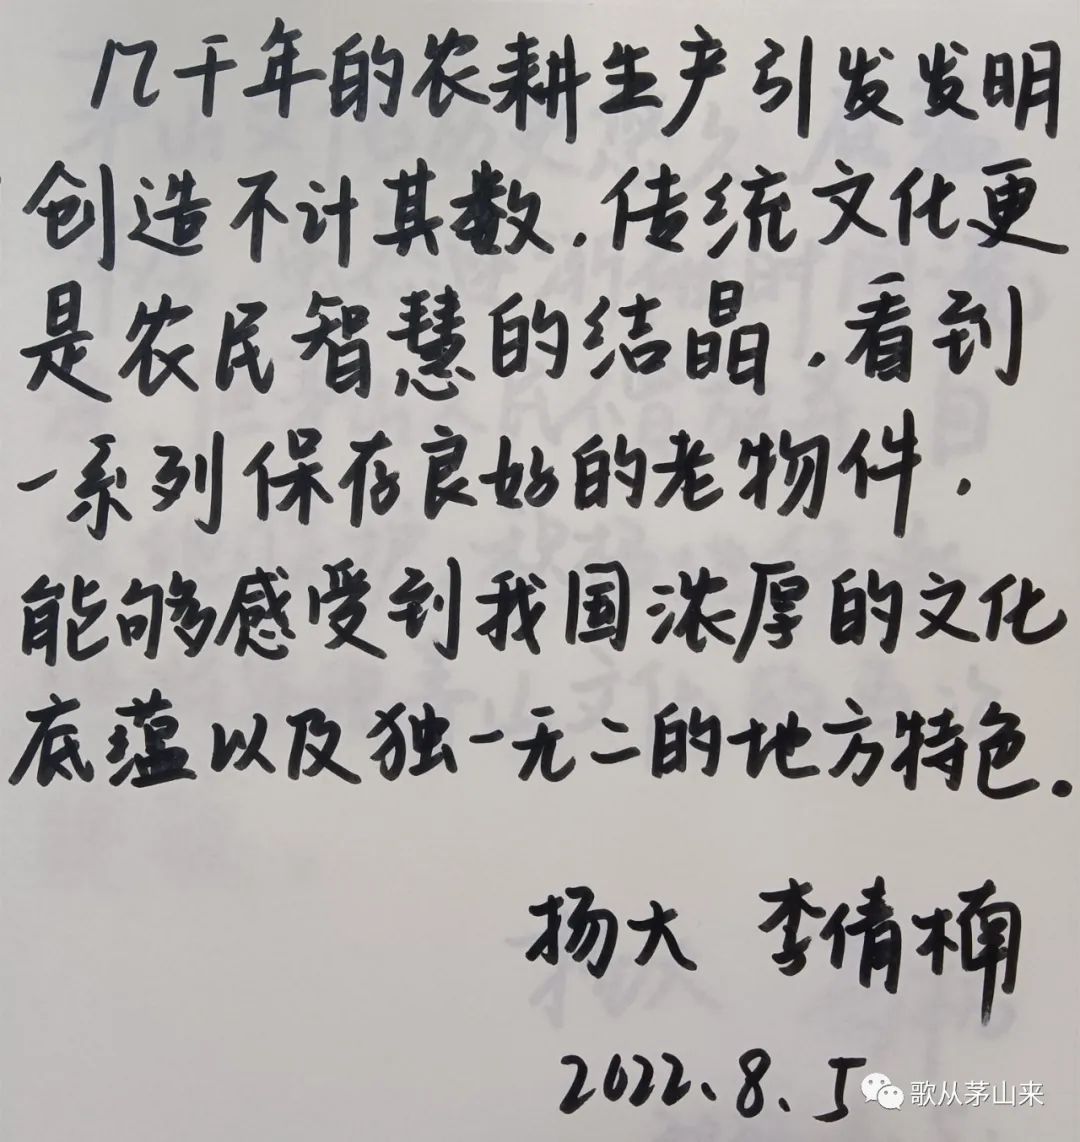 几千年的农耕生产引发发明
创造不计其数.传统文化更
是农民智慧的结晶.看到
一系列保存良好的老物件.
能够感受到我国浓厚的文化
底蕴以及独一无二的地方特色.
扬大 李倩楠
2022.8.5
歌从茅山来